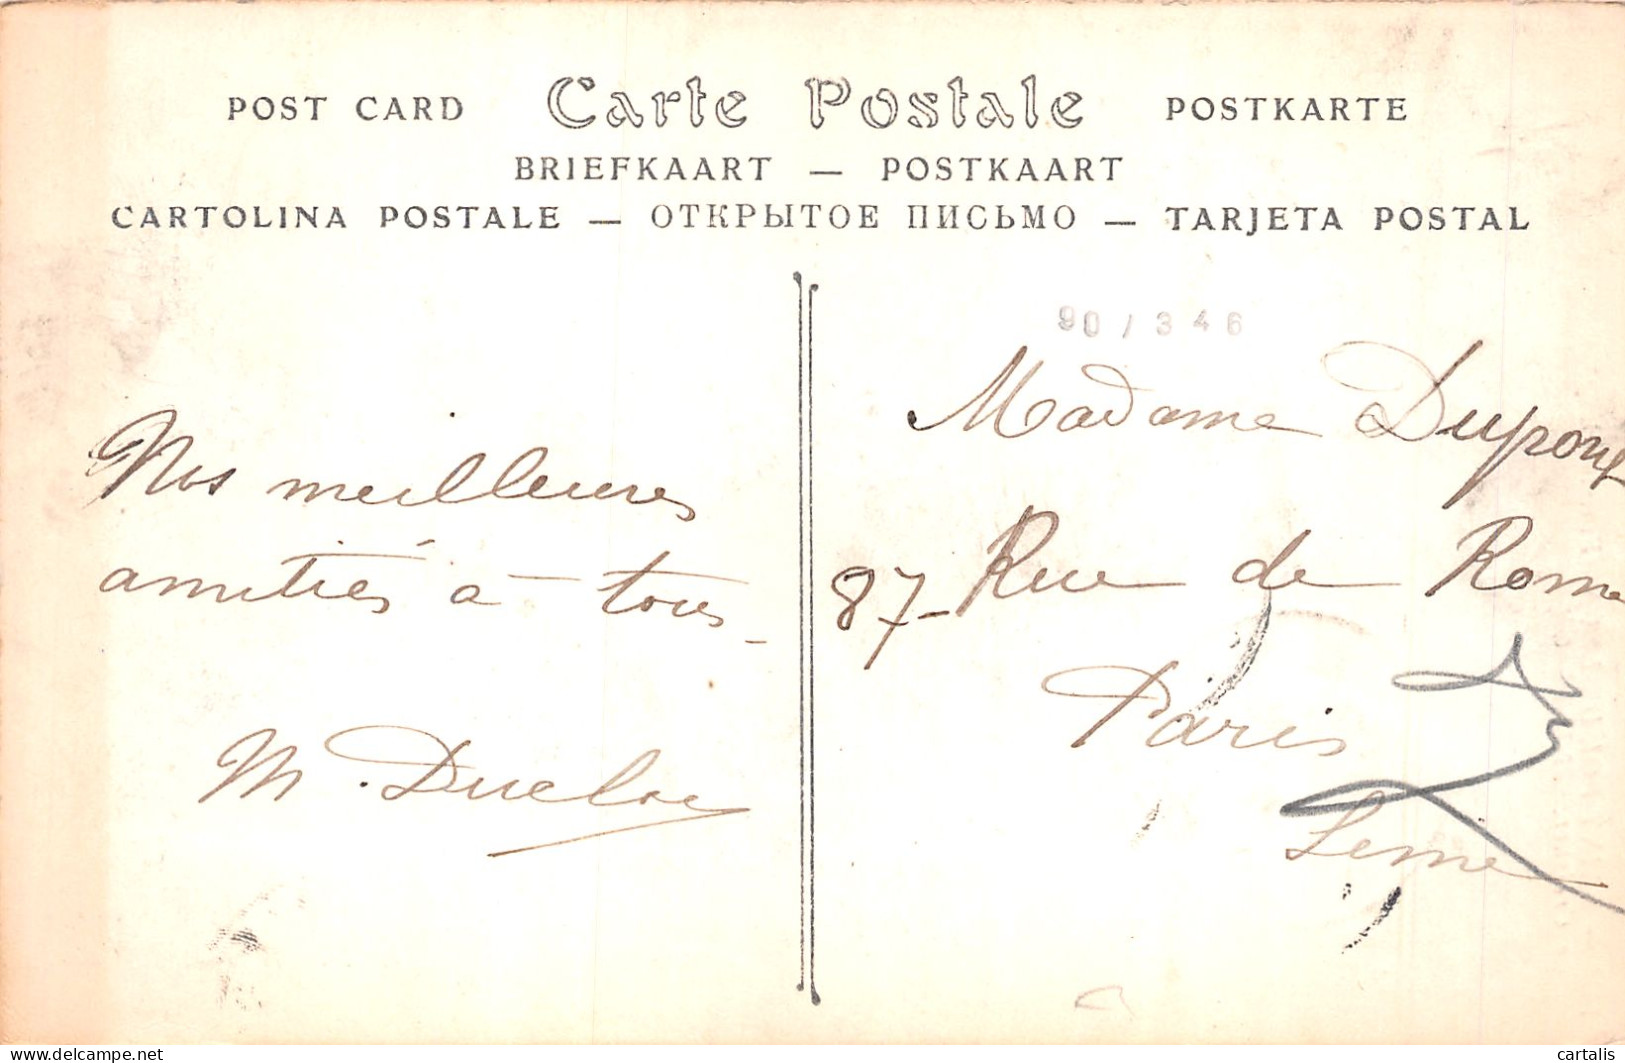 POST CARD Carte Postale POSTKARTE
BRIEFKAART — POSTKAART
CARTOLINA POSTALE — ОТКРЫТОЕ ПИСЬМО — TARJETA POSTAL
90 / 3 4 6
Nos meilleures
amitiés à tous_
M. Ducloc
Madame Dupouy
87- Rue de Rome
Paris
Seine
delcampe.net
cartalis